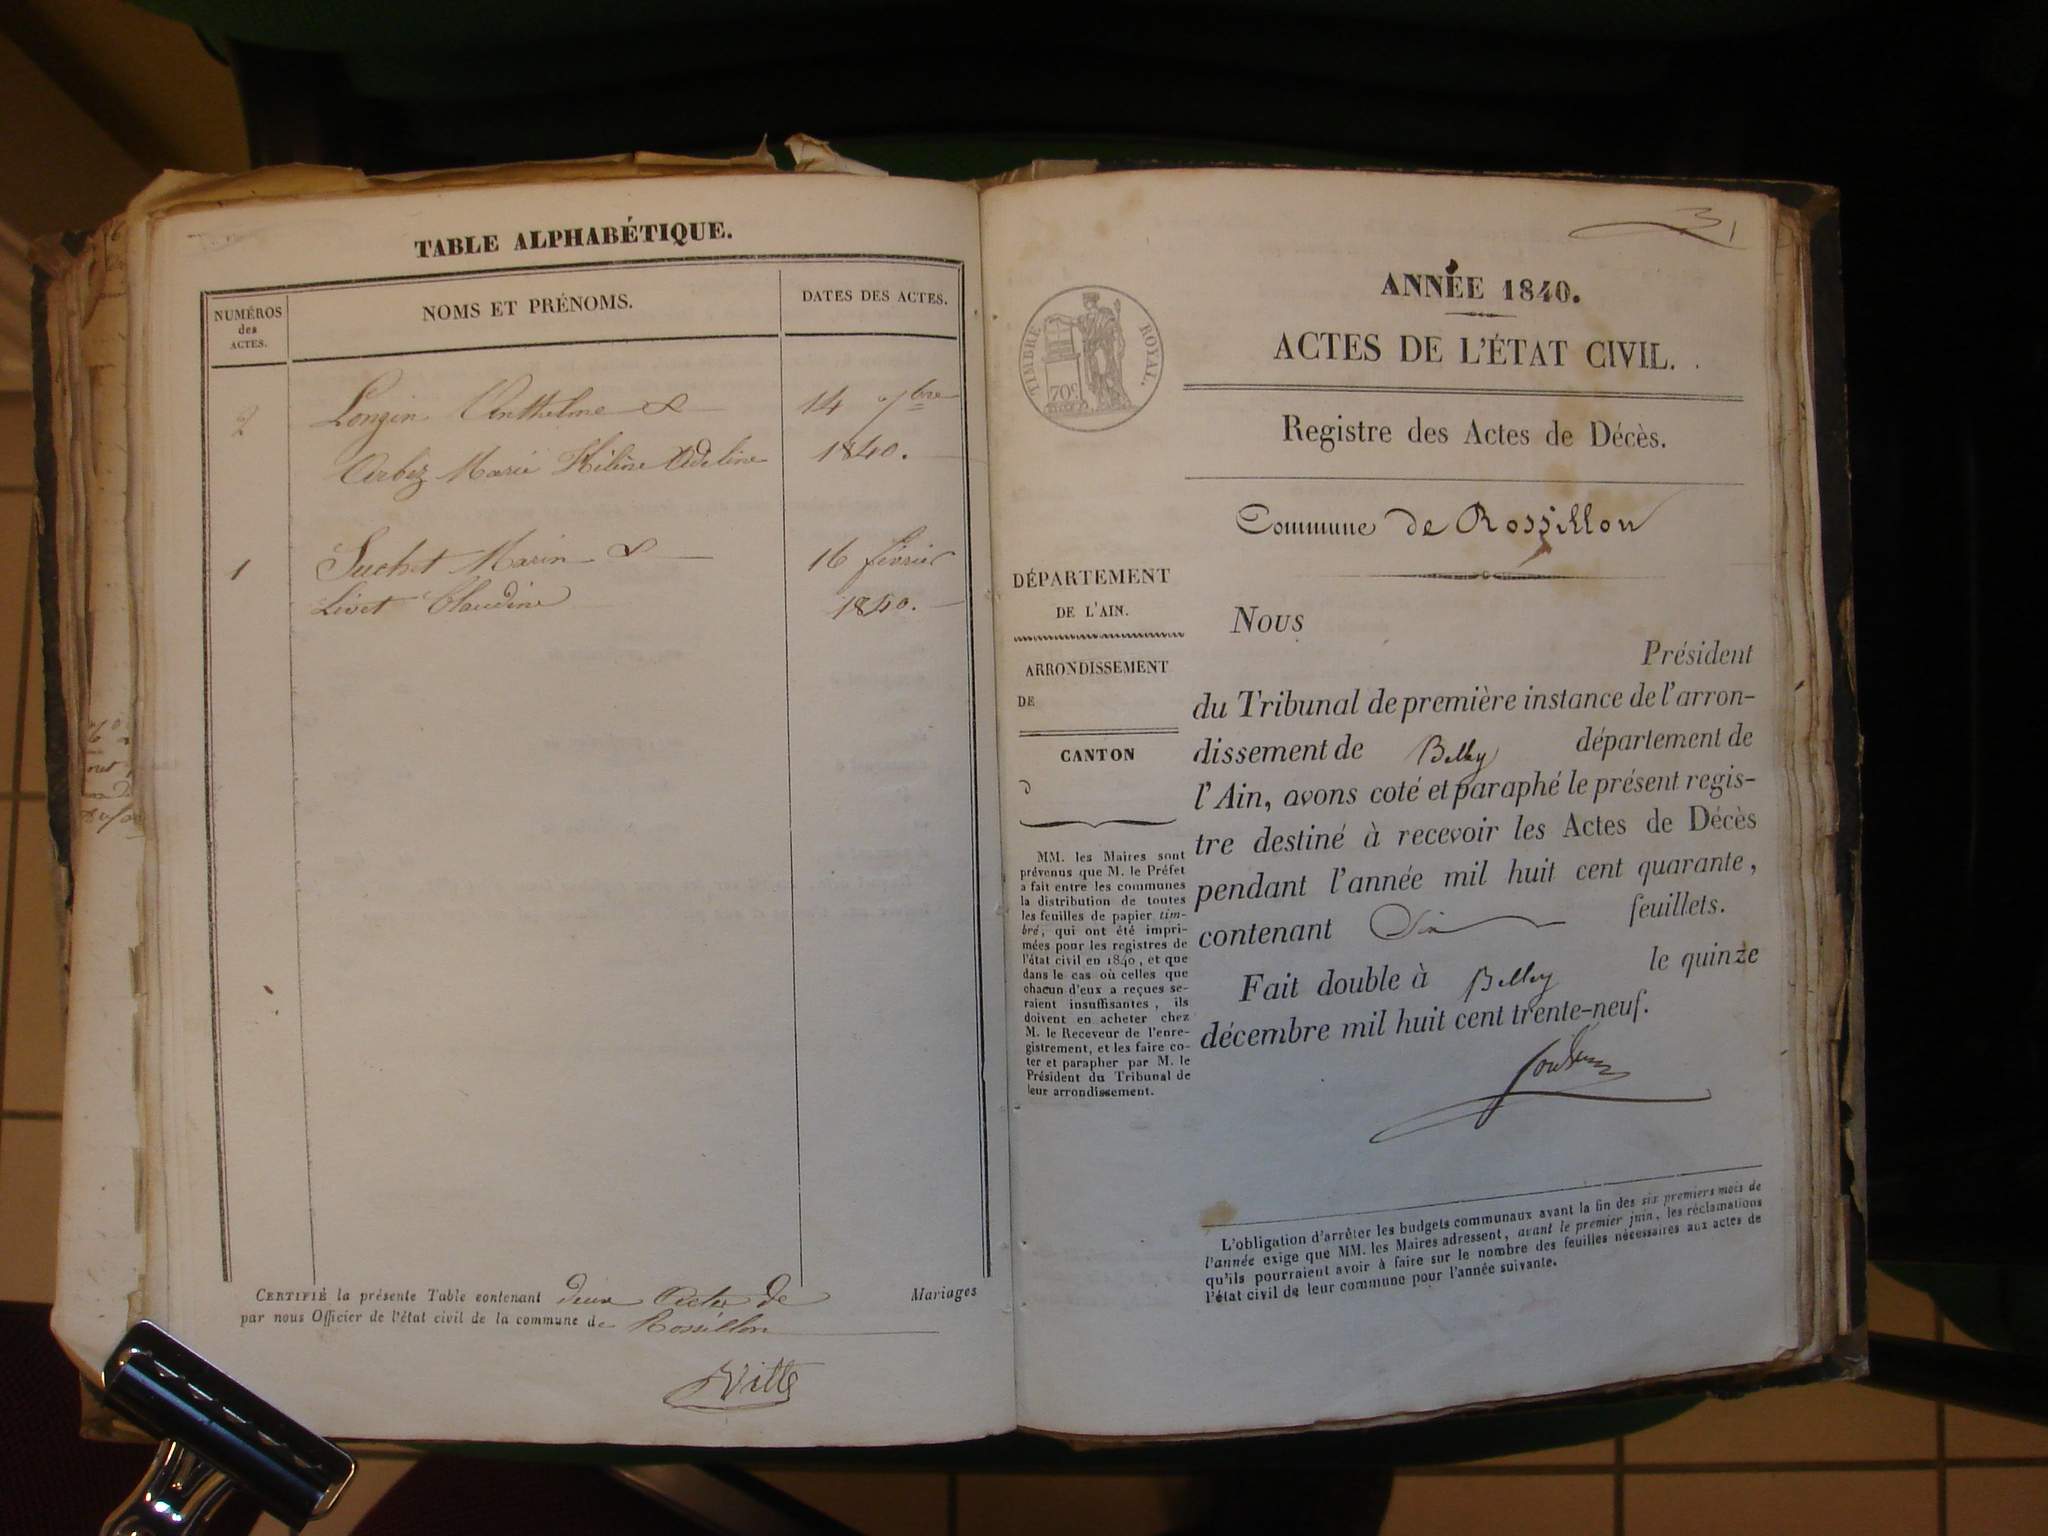 TABLE ALPHABÉTIQUE.
NUMÉROS
des
ACTES.
NOMS ET PRÉNOMS.
DATES DES ACTES.
2 Longin Anthelme & 14 7bre
Arbez Marie Hélène Adeline 1840.
1 Suchet Marin & 16 février
Livet Claudine 1840.
CERTIFIÉ la présente Table contenant deux Actes de Mariages
par nous Officier de l'état civil de la commune de Rossillon
Vitte
ANNÉE 1840.
ACTES DE L'ÉTAT CIVIL.
Registre des Actes de Décès.
Commune de Rossillon
TIMBRE ROYAL.
70c
DÉPARTEMENT
DE L'AIN.
ARRONDISSEMENT
DE
CANTON
MM. les Maires sont
prévenus que M. le Préfet
a fait entre les communes
la distribution de toutes
les feuilles de papier tim-
bré, qui ont été impri-
mées pour les registres de
l'état civil en 1840, et que
dans le cas où celles que
chacun d'eux a reçues se-
raient insuffisantes, ils
doivent en acheter chez
M. le Receveur de l'enre-
gistrement, et les faire co-
ter et parapher par M. le
Président du Tribunal de
leur arrondissement.
Nous
Président
du Tribunal de première instance de l'arron-
dissement de Belley département de
l'Ain, avons coté et paraphé le présent regis-
tre destiné à recevoir les Actes de Décès
pendant l'année mil huit cent quarante,
contenant Six feuillets.
Fait double à Belley le quinze
décembre mil huit cent trente-neuf.
L'obligation d'arrêter les budgets communaux avant la fin des six premiers mois de
l'année exige que MM. les Maires adressent, avant le premier juin, les réclamations
qu'ils pourraient avoir à faire sur le nombre des feuilles nécessaires aux actes de
l'état civil de leur commune pour l'année suivante.